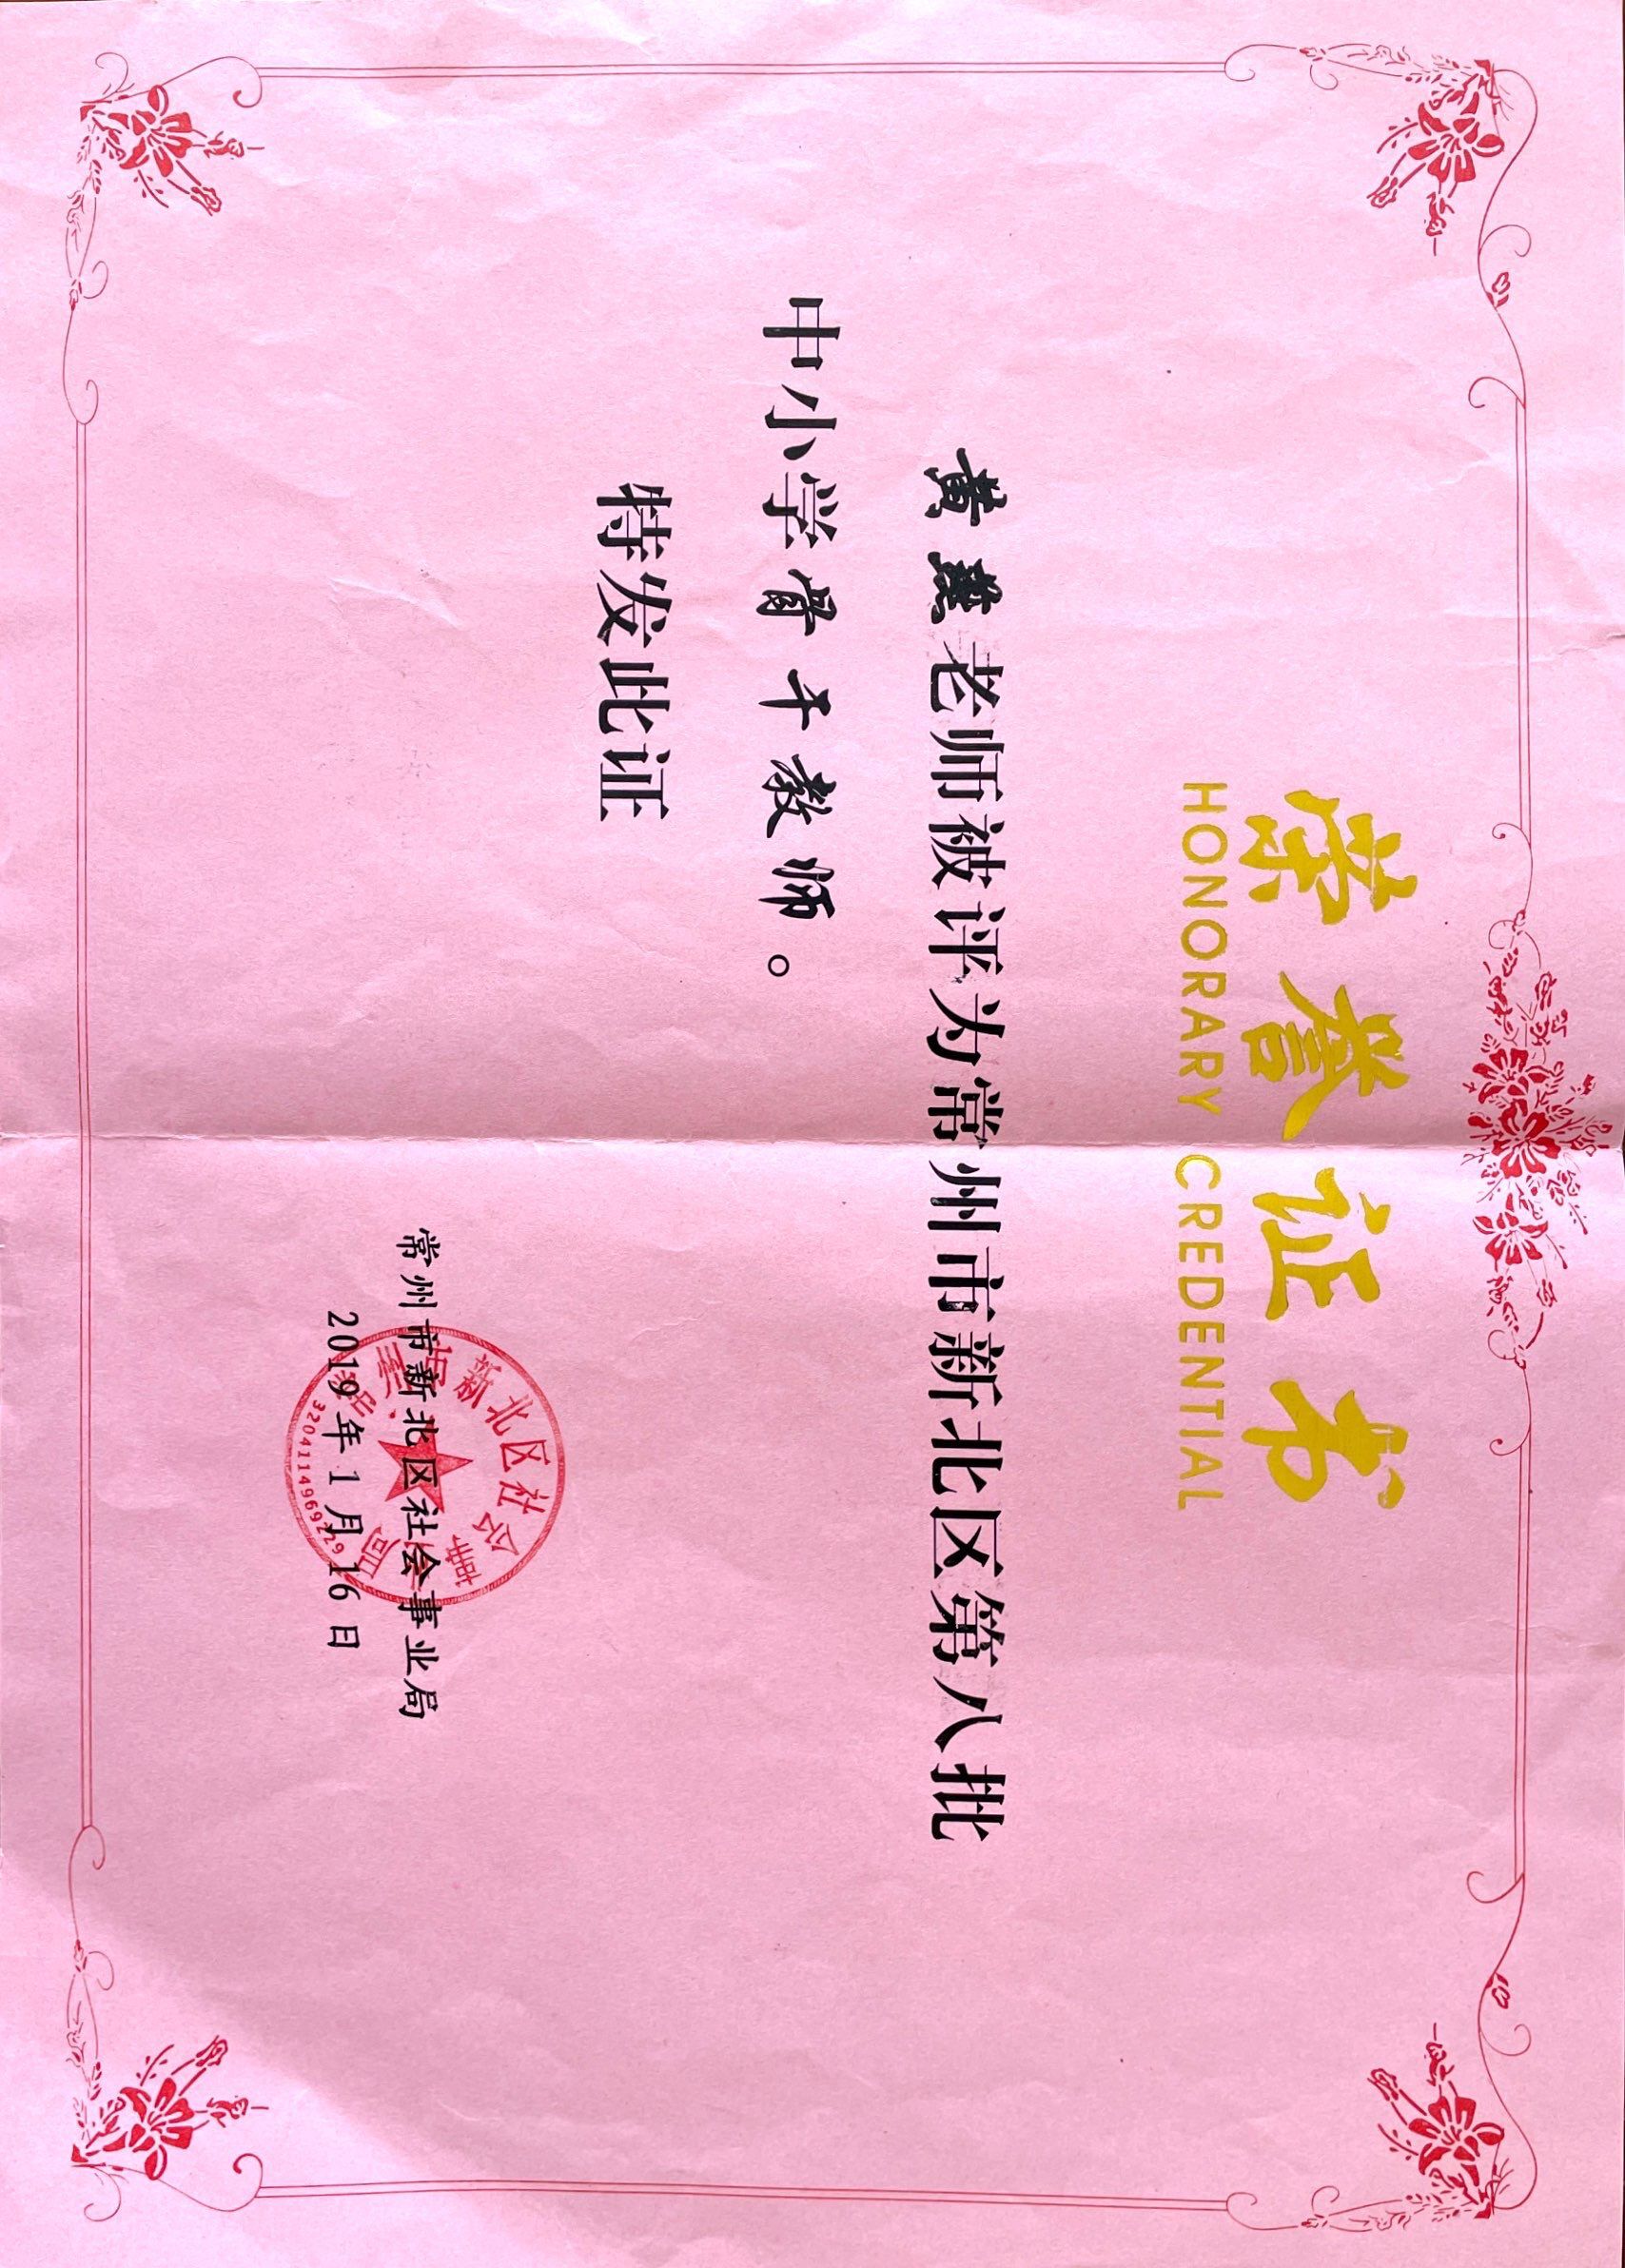 荣誉证书
HONORARY CREDENTIAL
黄 老师被评为常州市新北区第八批
中小学骨干教师。
特发此证
常州市新北区社会事业局
2019年1月16日